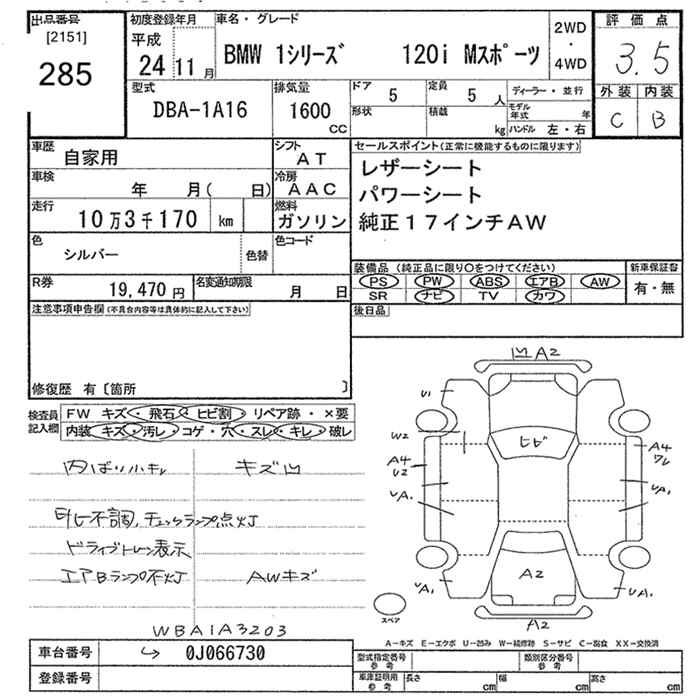 出品番号
[2151]
285
初度登録年月
平成
24 11 月
車名・グレード
BMW 1シリーズ 120i Mスポーツ
2WD
・
4WD
評価点
3.5
外装 内装
C B
型式
DBA-1A16
排気量
1600
CC
ドア 5
定員 5 人
ディーラー・並行
形状
積載 kg
モデル年式 年
ハンドル 左・右
車歴
自家用
シフト
AT
車検
年 月( 日)
冷房
AAC
走行
10万3千170 km
燃料
ガソリン
色
シルバー
色替
色コード
R券
19,470 円
名変通知期限
月 日
セールスポイント(正常に機能するものに限ります)
レザーシート
パワーシート
純正17インチAW
装備品 (純正品に限り○をつけてください)
新車保証書
PS PW ABS エアB AW
SR ナビ TV カワ
有・無
後日品
注意事項申告欄(不具合内容等は具体的に記入して下さい)
修復歴 有〔箇所 〕
検査員記入欄
FW キズ・飛石・ヒビ割・リペア跡・×要
内装・キズ・汚レ・コゲ・穴・スレ・キレ・破レ
キズ凹
不調,チェックランプ点灯
ドライブトレーン表示
エアBランプ不灯 AWキズ
WBA1A3203
車台番号
0J066730
登録番号
凹 A2
U1
W2
ヒビ
A4
U2
A4
ワレ
UA1
UA1
UA1
A2
UA1
スペア
A2
A-キズ E-エクボ U-凹み W-補修跡 S-サビ C-腐食 XX-交換済
型式指定番号
参考
類別区分番号
参考
車庫証明用
参考
長さ cm
幅 cm
高さ cm